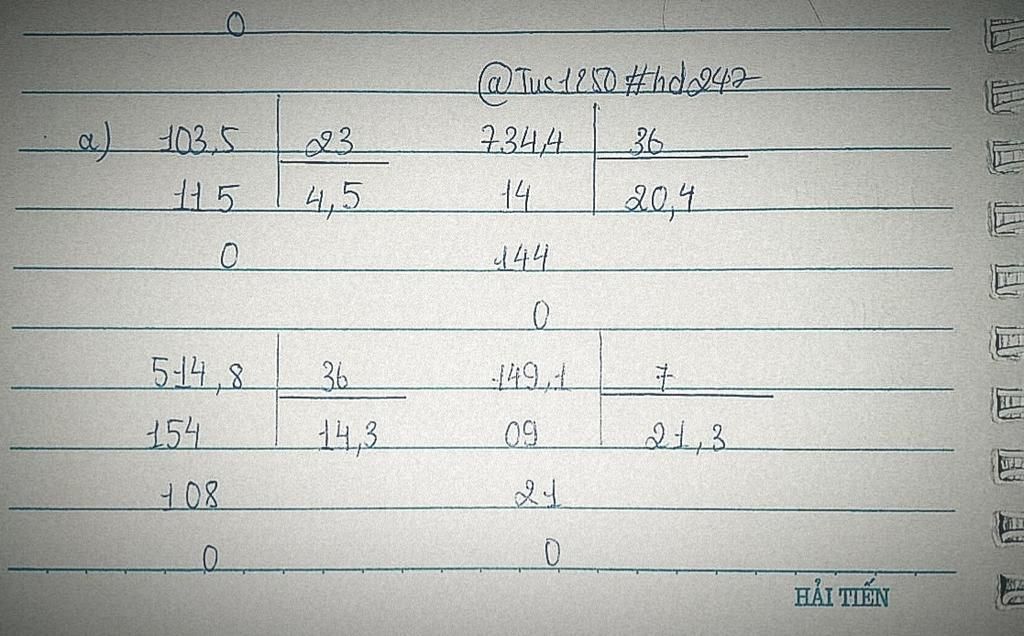 0
@Tus1250#hd247
a) 103,5 23 734,4 36
115 4,5 14 20,4
0 144
0
514,8 36 149,1 7
154 14,3 09 21,3
108 21
0 0
HẢI TIẾN